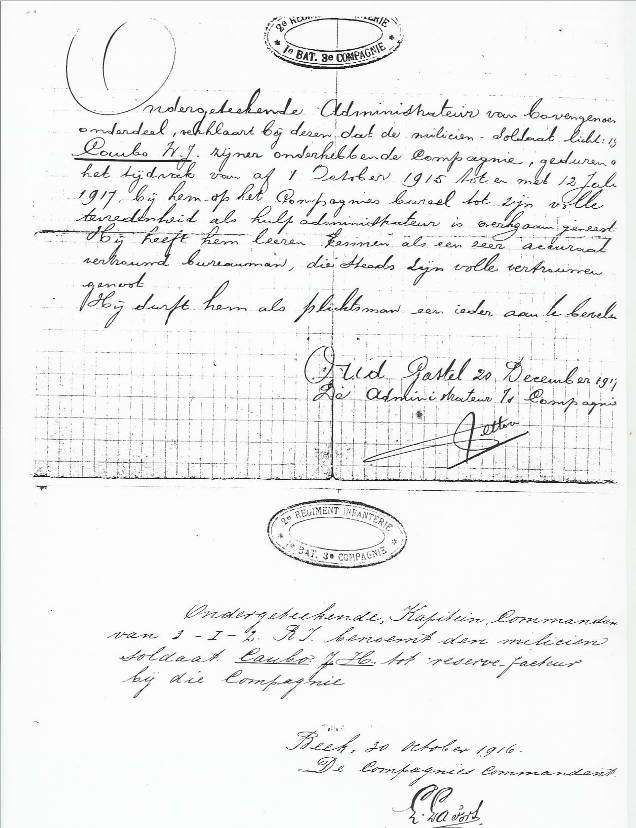 2e REGIMENT INFANTERIE
* 1e BAT. 3e COMPAGNIE *
Ondergeteekende Administrateur van bovengenoem
onderdeel, verklaart bij dezen dat de milicien-soldaat licht: 15
Caubo H.J. zijner onderhebbende Compagnie, gedurende
het tijdvak van af 1 October 1915 tot en met 12 Juli
1917 bij hem op het Compagnies bureel tot zijn volle
tevredenheid als hulp administrateur is werkzaam geweest
Hij heeft hem leeren kennen als een zeer accuraat
vertrouwd bureauman, die steeds zijn volle vertrouwen
genoot.
Hij durft hem als plichtsman een ieder aan te bevelen
Oud Gastel 20 December 191
De Administrateur Compagnie
2e REGIMENT INFANTERIE
* 1e BAT. 3e COMPAGNIE *
Ondergeteekende, Kapitein, Commandan
van 3-I-2 R.I. benoemt den milicien
soldaat Caubo J.H. tot reserve-facteur
bij die Compagnie
Beek, 20 October 1916.
De Compagnies Commandant.